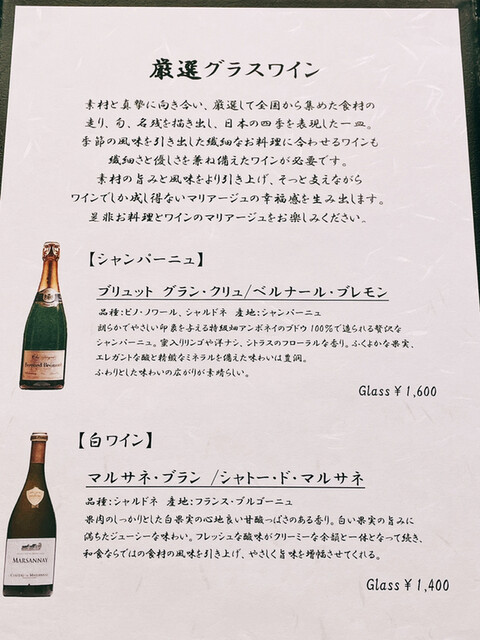 厳選グラスワイン
素材と真摯に向き合い、厳選して全国から集めた食材の
走り、旬、名残を描き出し、日本の四季を表現した一皿。
季節の風味を引き出した繊細なお料理に合わせるワインも
繊細さと優しさを兼ね備えたワインが必要です。
素材の旨みと風味をより引き上げ、そっと支えながら
ワインでしか成し得ないマリアージュの幸福感を生み出します。
是非お料理とワインのマリアージュをお楽しみください。
【シャンパーニュ】
ブリュット グラン・クリュ/ベルナール・ブレモン
品種：ピノ・ノワール、シャルドネ 産地：シャンパーニュ
朗らかでやさしい印象を与える特級畑アンボネイのブドウ100%で造られる贅沢な
シャンパーニュ。蜜入りリンゴや洋ナシ、シトラスのフローラルな香り。ふくよかな果実、
エレガントな酸と精緻なミネラルを備えた味わいは豊潤。
ふわりとした味わいの広がりが素晴らしい。
Glass￥1,600
【白ワイン】
マルサネ・ブラン /シャトー・ド・マルサネ
品種：シャルドネ 産地：フランス・ブルゴーニュ
果肉のしっかりとした白果実の心地良い甘酸っぱさのある香り。白い果実の旨みに
満ちたジューシーな味わい。フレッシュな酸味がクリーミーな余韻と一体となって続き、
和食ならではの食材の風味を引き上げ、やさしく旨味を増幅させてくれる。
MARSANNAY
Glass￥1,400